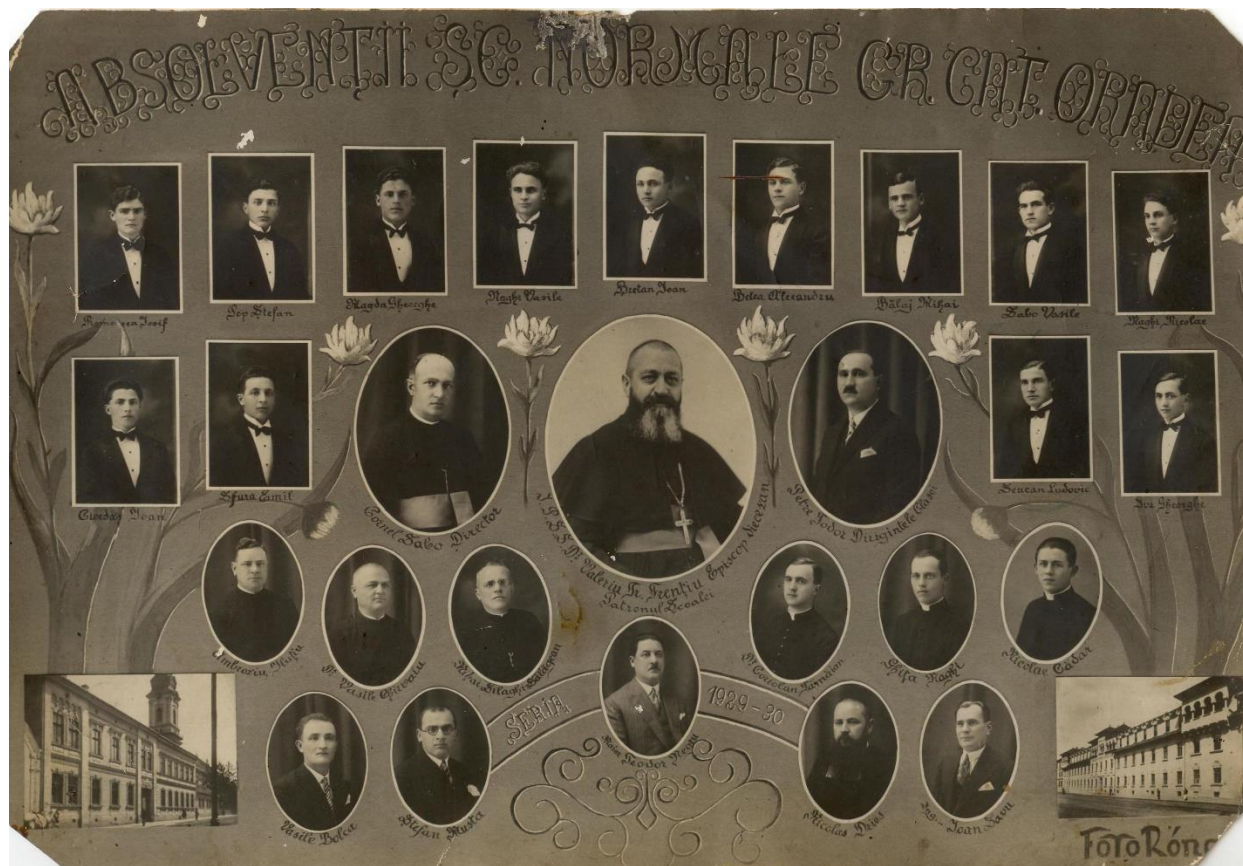 ABSOLVENȚII ȘC. NORMALE GR. CAT. ORADEA
Iosif
Pop Ștefan
Magda Gheorghe
Naghi Vasile
Bretan Ioan
Betea Alexandru
Bălaj Mihai
Sabo Vasile
Naghi Nicolae
Ciordaș Ioan
Sfura Emil
Cornel Sabo Director
P. S. S. Dr. Valeriu Tr. Frențiu Episcop Diecezan
Patronul Școalei
Petre Fodor Dirigintele Clasei
Seucan Ludovic
Gheorghe
Ambroziu
Dr. Vasile
Mihai Silaghi Sălăgean
Dr. Coriolan Tămăian
Ghița Naghi
Nicolae Cadar
SERIA 1929-30
Teodor Neșiu
Vasile Bolca
Ștefan Musta
Nicolae Drieș
Ing. Ioan Savu
Foto Róna